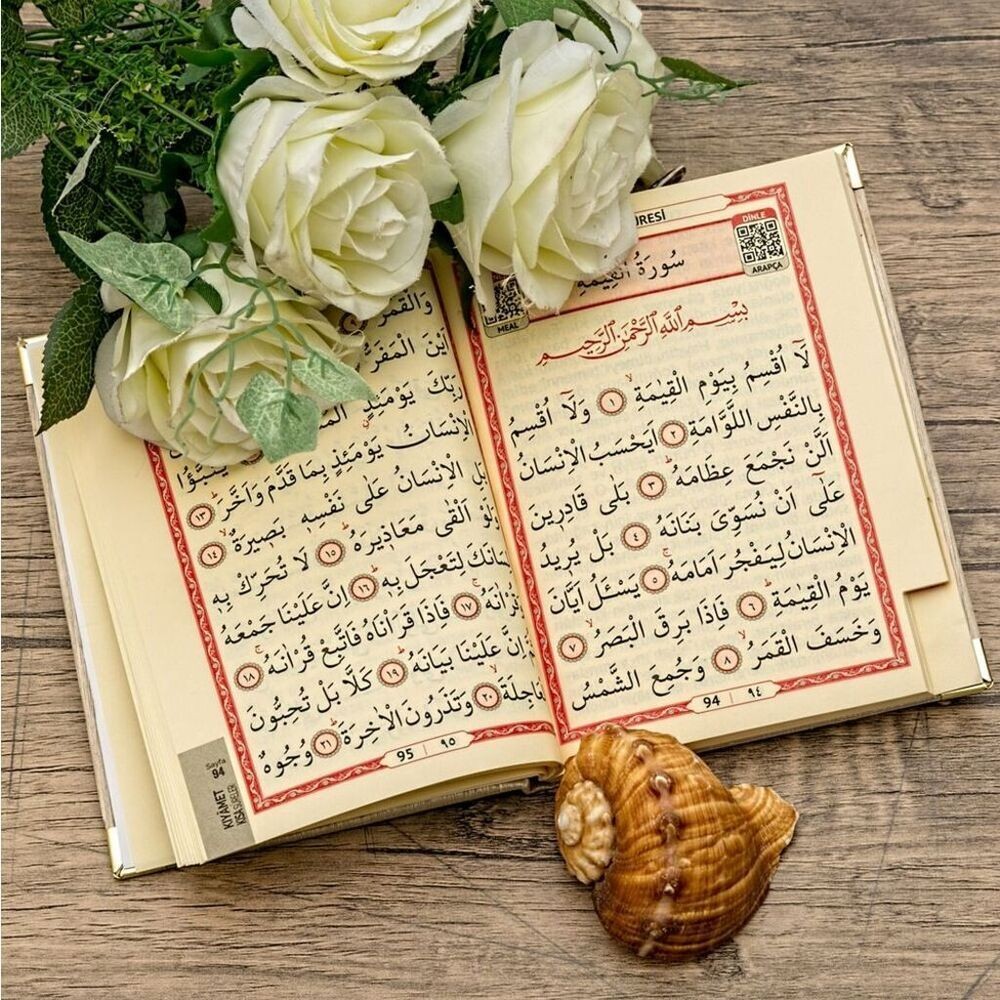 RESİ
DİNLE
ARAPÇA
MEAL
سُورَةُ الْقِيٰمَةِ
بِسْمِ اللّٰهِ الرَّحْمٰنِ الرَّحِيمِ
لَٓا اُقْسِمُ بِيَوْمِ الْقِيٰمَةِۙ ﴿١﴾ وَلَٓا اُقْسِمُ
بِالنَّفْسِ اللَّوَّامَةِ ﴿٢﴾ اَيَحْسَبُ الْاِنْسَانُ
اَلَّنْ نَجْمَعَ عِظَامَهُۜ ﴿٣﴾ بَلٰى قَادِرِينَ
عَلٰٓى اَنْ نُسَوِّيَ بَنَانَهُ ﴿٤﴾ بَلْ يُرِيدُ
الْاِنْسَانُ لِيَفْجُرَ اَمَامَهُۚ ﴿٥﴾ يَسْـَٔلُ اَيَّانَ
يَوْمُ الْقِيٰمَةِۜ ﴿٦﴾ فَاِذَا بَرِقَ الْبَصَرُۙ ﴿٧﴾
وَخَسَفَ الْقَمَرُۙ ﴿٨﴾ وَجُمِعَ الشَّمْسُ
94 | ٩٤
وَالْقَمَرُ
اَيْنَ الْمَفَرُّ
رَبِّكَ يَوْمَئِذٍ
يُنَبَّؤُا الْاِنْسَانُ يَوْمَئِذٍ بِمَا قَدَّمَ وَاَخَّرَۜ ﴿١٣﴾
بَلِ الْاِنْسَانُ عَلٰى نَفْسِهٖ بَصِيرَةٌۙ ﴿١٤﴾
وَلَوْ اَلْقٰى مَعَاذِيرَهُۜ ﴿١٥﴾ لَا تُحَرِّكْ بِهٖ
لِسَانَكَ لِتَعْجَلَ بِهٖۜ ﴿١٦﴾ اِنَّ عَلَيْنَا جَمْعَهُ
وَقُرْاٰنَهُۚ ﴿١٧﴾ فَاِذَا قَرَأْنَاهُ فَاتَّبِعْ قُرْاٰنَهُۚ ﴿١٨﴾
ثُمَّ اِنَّ عَلَيْنَا بَيَانَهُۜ ﴿١٩﴾ كَلَّا بَلْ تُحِبُّونَ
الْعَاجِلَةَۙ ﴿٢٠﴾ وَتَذَرُونَ الْاٰخِرَةَۜ ﴿٢١﴾ وُجُوهٌ
95 | ٩٥
Sayfa
94
KIYÂMET
KISA SÛRELER